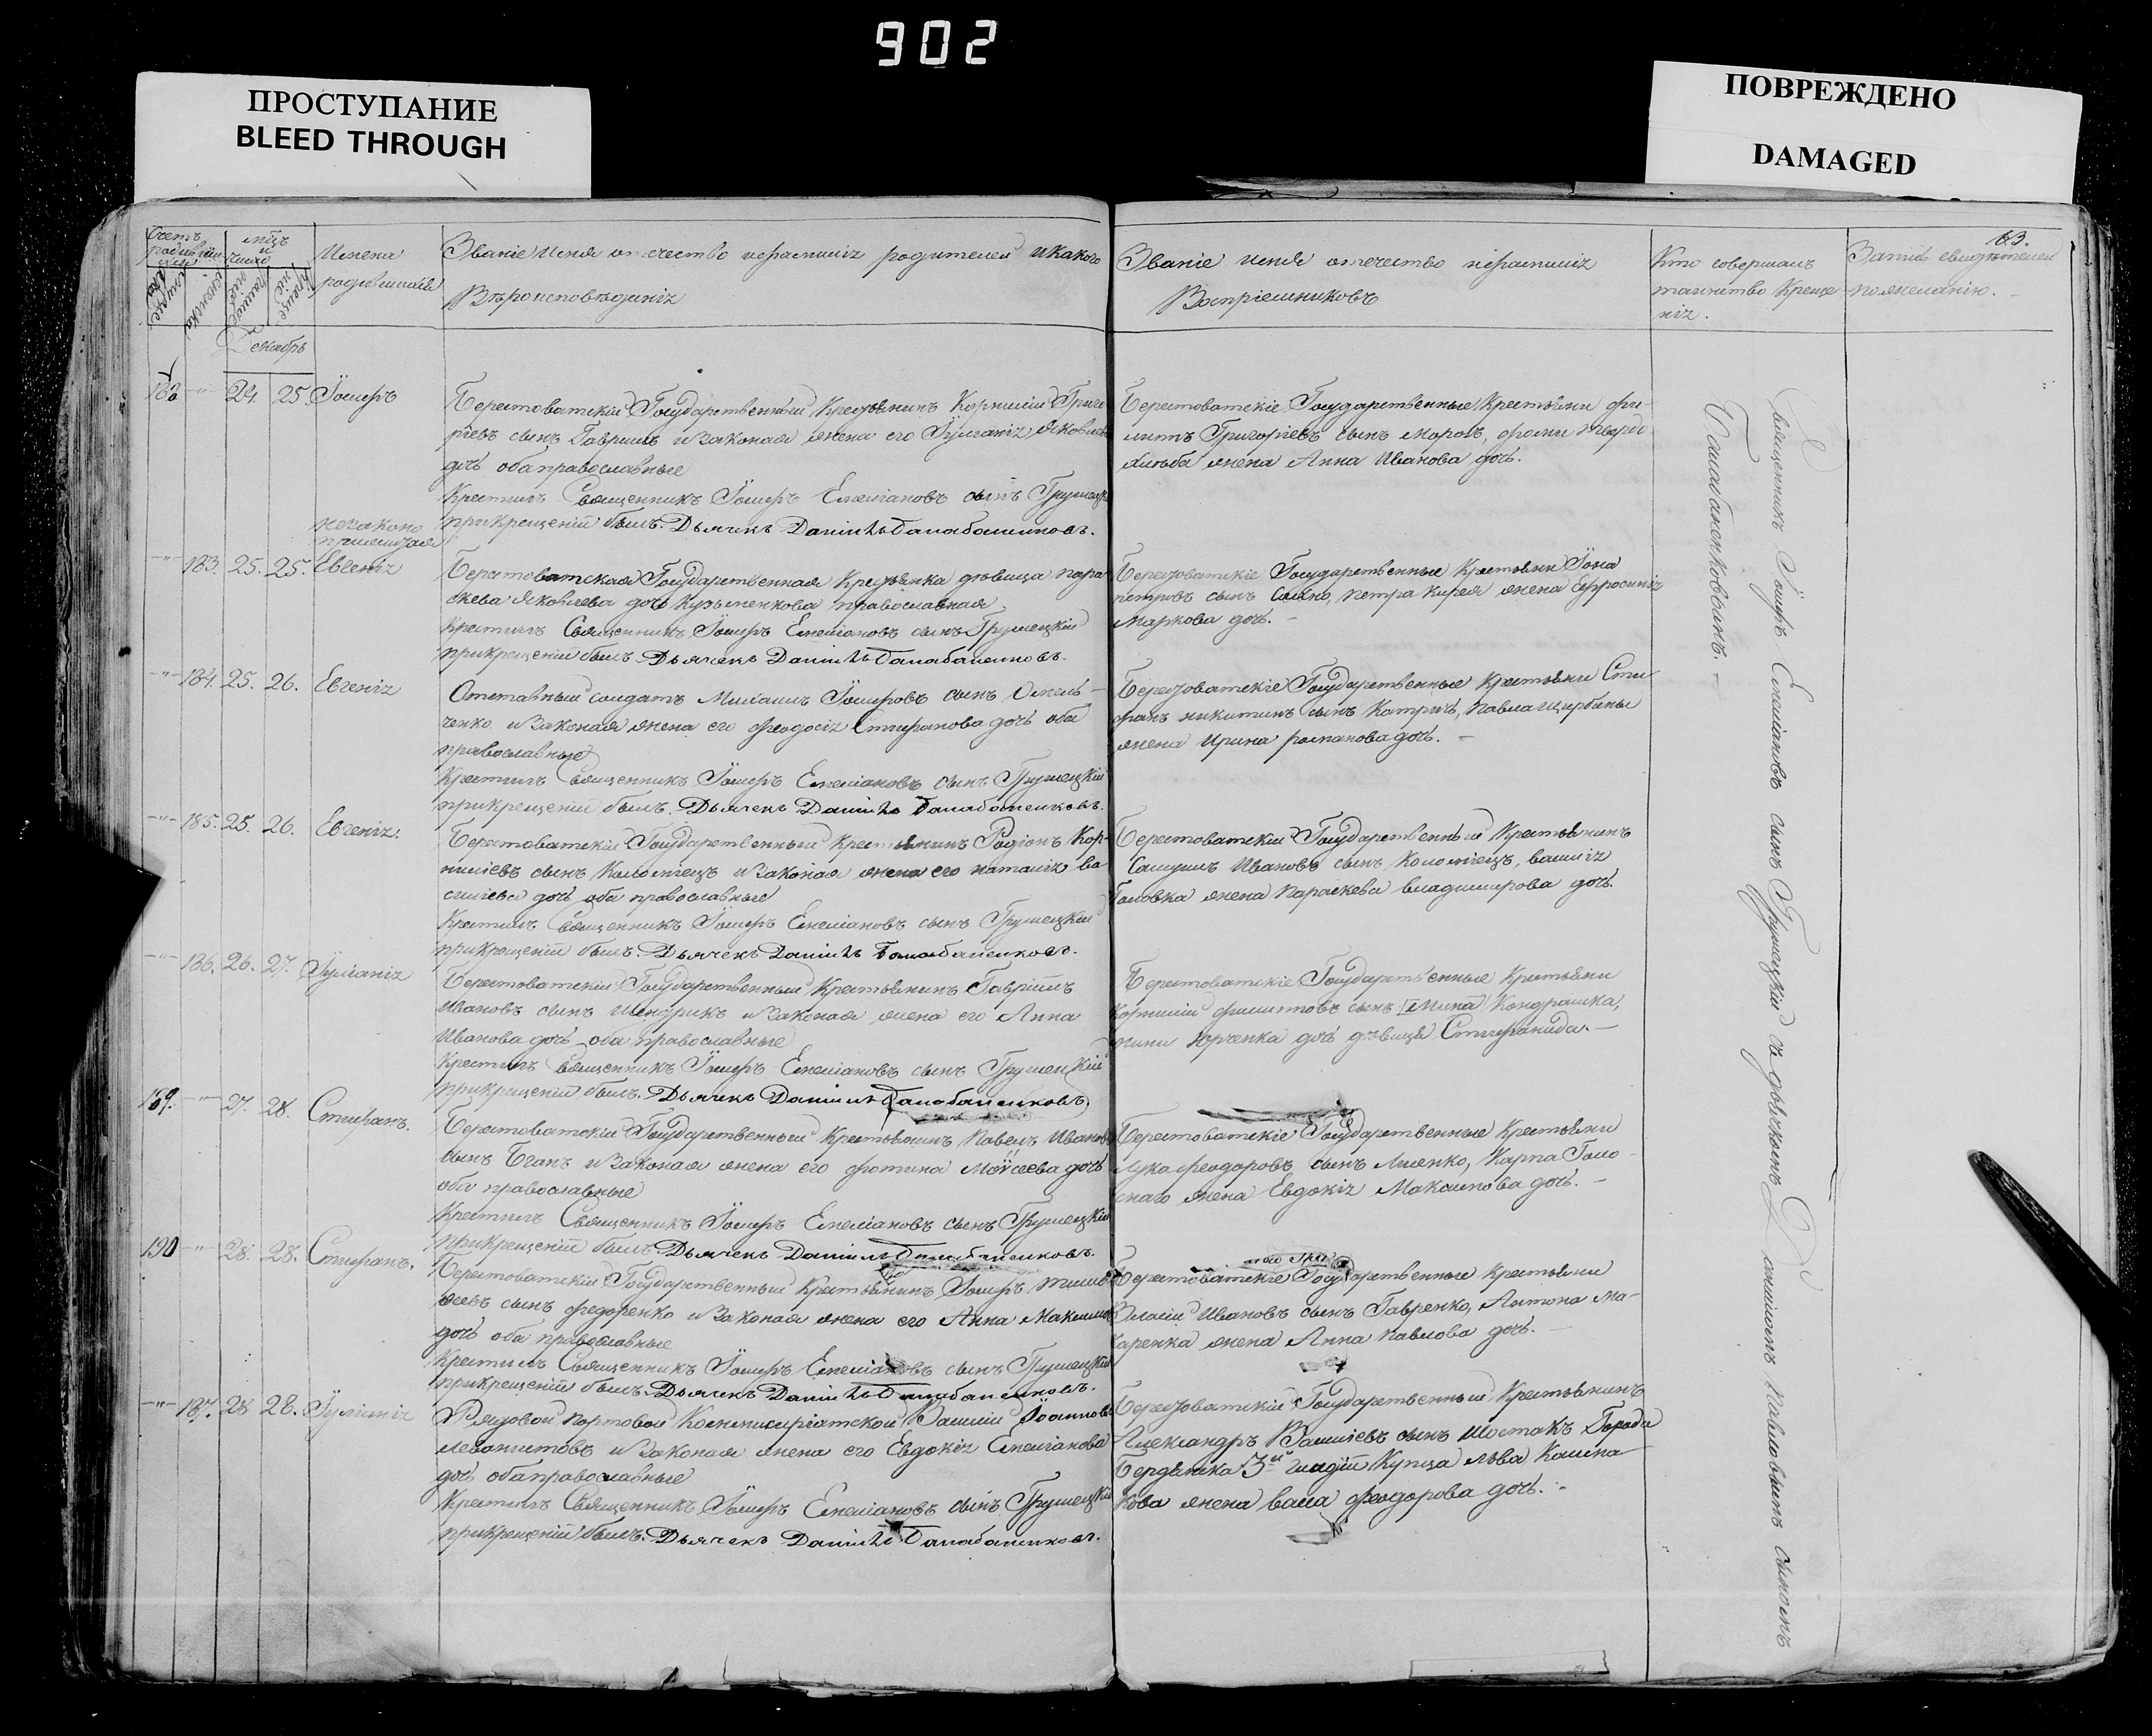 902
ПРОСТУПАНИЕ
BLEED THROUGH
ПОВРЕЖДЕНО
DAMAGED
63.
Счетъ родившихся
мѣц и число
Имена родившихся
Званіе имя отечество и фамилія родителей и какого
Вѣроисповѣданія
Званіе имя отечество и фамилія
Воспріемниковъ
Кто совершалъ
таинство Креще
нія.
Запись свидѣтелей
по желанію.
Декабрь
24. 25. Іосифъ
Берестоватскій Государственный Крестьянинъ Корнилій Григо
рьевъ сынъ Гавришъ и Законая жена его Іуліанія Яковлева
дочь оба православные
Крестилъ Священникъ Іосифъ Емеліановъ сынъ Грушецкій
при крещеніи былъ Дьячекъ Даніилъ Балабаненковъ.
Берестоватскіе Государственные Крестьяни Фи-
липъ Григоріевъ сынъ Морозъ, Фомы Тверdo
хлѣба жена Анна Иванова дочь.
незаконо
прижитая
183. 25. 25. Евгенія
Берестоватская Государственная Крестьянка дѣвица Пара
скева Яковлева дочь Кузьменкова православная
Крестилъ Священникъ Іосифъ Емеліановъ сынъ Грушецкій
при крещеніи былъ Дьячекъ Даніилъ Балабаненковъ.
Берестоватскіе Государственные Крестьяни Іона
Петровъ сынъ Петра Кирея жена Ефросинія
Маркова дочь.
184. 25. 26. Евгенія
Отставный солдатъ Михаилъ Іосифовъ сынъ Омель-
ченко и Законая жена его Феодосія Стефанова дочь оба
православные
Крестилъ Священникъ Іосифъ Емеліановъ сынъ Грушецкій
при крещеніи былъ. Дьячекъ Даніилъ Балабаненковъ.
Берестоватскіе Государственные Крестьяни Сте-
фанъ Никитинъ сынъ Катричъ, Павла Щербины
жена Ирина Романова дочь.
185. 25. 26. Евгенія.
Берестоватскій Государственный Крестьянинъ Родіонъ Кор-
ниліевъ сынъ Коломіецъ и Законая жена его Наталія Ва
силіева дочь оба православные
Крестилъ Священникъ Іосифъ Емеліановъ сынъ Грушецкій
при крещеніи былъ. Дьячекъ Даніилъ Балабаненковъ.
Берестоватскій Государственный Крестьянинъ
Самуилъ Ивановъ сынъ Коломіецъ, Василія
Головка жена Параскева Владимирова дочь.
186. 26. 27. Іуліанія
Берестоватскій Государственный Крестьянинъ Гавріилъ
Ивановъ сынъ Шендрикъ и Законая жена его Анна
Иванова дочь оба православные
Крестилъ Священникъ Іосифъ Емеліановъ сынъ Грушецкій
при крещеніи былъ. Дьячекъ Даніилъ Балабаненковъ.
Берестоватскіе Государственные Крестьяни
Корнилій Филиповъ сынъ Кондрашка,
Юрченка дочь дѣвица Стефанида.
189. 27. 28. Стефанъ.
Берестоватскій Государственный Крестьянинъ Павелъ Ивановъ
сынъ Беганъ и Законая жена его Фотина Моисеева дочь
оба православные
Крестилъ Священникъ Іосифъ Емеліановъ сынъ Грушецкій
при крещеніи былъ. Дьячекъ Даніилъ Балабаненковъ.
Берестоватскіе Государственные Крестьяни
Лука Феодоровъ сынъ Карпа Голо-
жена Евдокія Максимова дочь.
190 28. 28. Стефанъ.
Берестоватскій Государственный Крестьянинъ Іосифъ Тимо
феевъ сынъ Федоренко и Законая жена его Анна Максимова
дочь оба православные
Крестилъ Священникъ Іосифъ Емеліановъ сынъ Грушецкій
при крещеніи былъ. Дьячекъ Даніилъ Балабаненковъ.
Берестоватскіе Государственные Крестьяни
Власій Ивановъ сынъ Гавренко, Антона Ма-
каренка жена Анна Павлова дочь.
187. 28 28. Іуліанія
Рядовой Портовой Василій Іоанновъ
и Законая жена его Евдокія Емеліанова
дочь оба православные
Крестилъ Священникъ Іосифъ Емеліановъ сынъ Грушецкій
при крещеніи былъ. Дьячекъ Даніилъ Балабаненковъ.
Берестоватскій Государственный Крестьянинъ
Александръ Василіевъ сынъ Шостакъ Города
Бердянска 3й гилдіи Купца Льва Калена-
кова жена Феодорова дочь.
Священникъ Іосифъ Емеліановъ сынъ Грушецкій съ дьячкомъ Даніиломъ Павловымъ сыномъ
Балабаненковымъ.